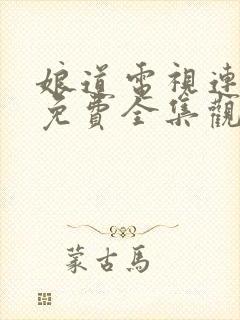 娘道電視連
免費全集觀
蒙古馬